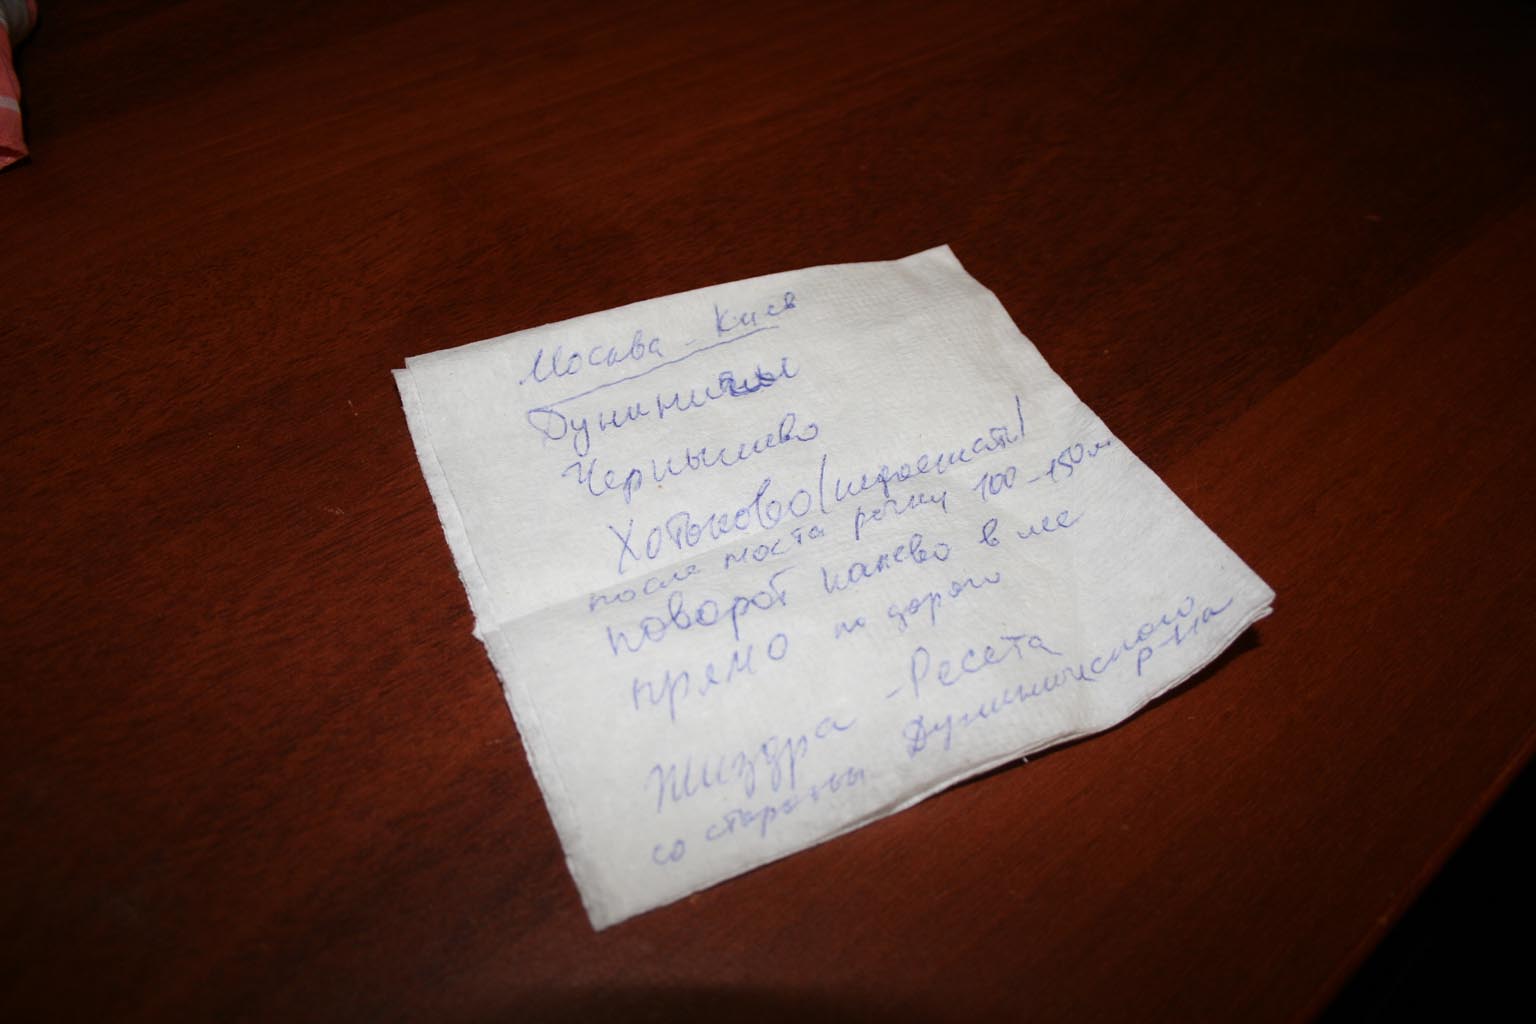 Москва - Киев
Думиничы
Чернышево
Хотьково (недоезжая)
после моста речки 100-150 м
поворот налево в ле
прямо по дороге
Жиздра - Ресета
со стороны Думинического
р-на